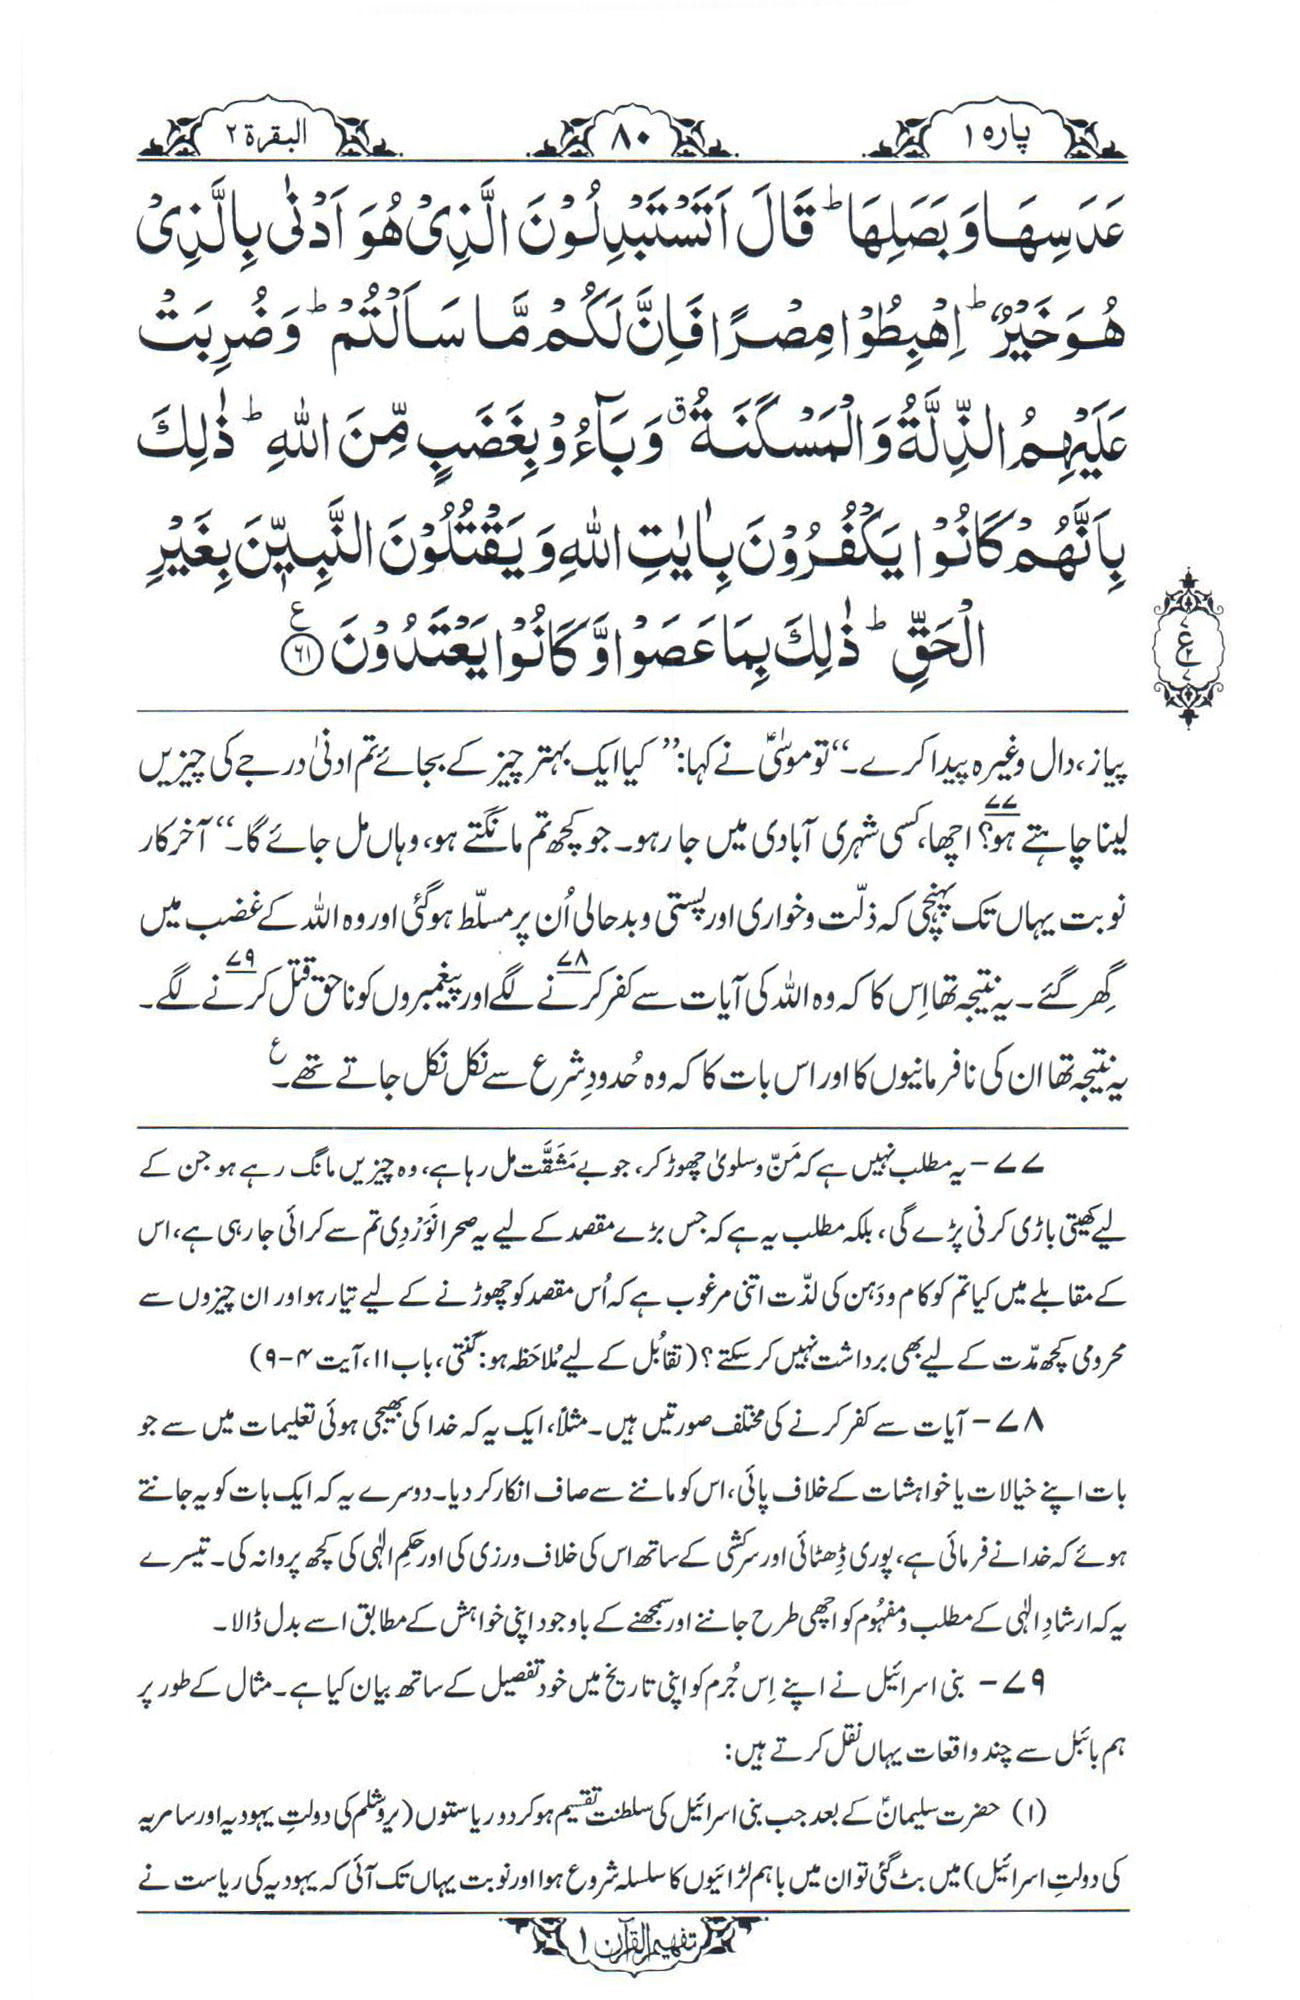 پارہ ۱
۸۰
البقرۃ ۲
عَدَسِهَا وَبَصَلِهَا ؕ قَالَ اَتَسْتَبْدِلُوْنَ الَّذِیْ هُوَ اَدْنٰی بِالَّذِیْ
هُوَ خَیْرٌ ؕ اِهْبِطُوْا مِصْرًا فَاِنَّ لَكُمْ مَّا سَاَلْتُمْ ؕ وَضُرِبَتْ
عَلَیْهِمُ الذِّلَّةُ وَالْمَسْكَنَةُ ۗ وَبَآءُوْ بِغَضَبٍ مِّنَ اللّٰهِ ؕ ذٰلِكَ
بِاَنَّهُمْ كَانُوْا یَكْفُرُوْنَ بِاٰیٰتِ اللّٰهِ وَیَقْتُلُوْنَ النَّبِیّٖنَ بِغَیْرِ
الْحَقِّ ؕ ذٰلِكَ بِمَا عَصَوْا وَّكَانُوْا یَعْتَدُوْنَ ﴿۶۱﴾ ع
پیاز، دال وغیرہ پیدا کرے۔“ تو موسٰیؑ نے کہا: ”کیا ایک بہتر چیز کے بجائے تم ادنیٰ درجے کی چیزیں
لینا چاہتے ہو؟۷۷ اچھا، کسی شہری آبادی میں جا رہو۔ جو کچھ تم مانگتے ہو، وہاں مل جائے گا۔“ آخرکار
نوبت یہاں تک پہنچی کہ ذلّت و خواری اور پستی و بدحالی اُن پر مسلّط ہوگئی اور وہ اللہ کے غضب میں
گھِر گئے۔ یہ نتیجہ تھا اِس کا کہ وہ اللہ کی آیات سے کفر کرنے۷۸ لگے اور پیغمبروں کو ناحق قتل کرنے۷۹ لگے۔
یہ نتیجہ تھا ان کی نافرمانیوں کا اور اس بات کا کہ وہ حُدودِ شرع سے نکل نکل جاتے تھے۔ع
۷۷- یہ مطلب نہیں ہے کہ مَنّ و سلویٰ چھوڑ کر، جو بے مَشَقَّت مل رہا ہے، وہ چیزیں مانگ رہے ہو جن کے
لیے کھیتی باڑی کرنی پڑے گی، بلکہ مطلب یہ ہے کہ جس بڑے مقصد کے لیے یہ صحرا نَوَرْدِی تم سے کرائی جا رہی ہے، اس
کے مقابلے میں کیا تم کو کام و دَہن کی لذّت اتنی مرغوب ہے کہ اُس مقصد کو چھوڑنے کے لیے تیار ہو اور ان چیزوں سے
محرومی کچھ مدّت کے لیے بھی برداشت نہیں کر سکتے؟ (تقابُل کے لیے مُلاحَظہ ہو: گنتی، باب ۱۱، آیت ۴-۹)
۷۸- آیات سے کفر کرنے کی مختلف صورتیں ہیں۔ مثلاً، ایک یہ کہ خدا کی بھیجی ہوئی تعلیمات میں سے جو
بات اپنے خیالات یا خواہشات کے خلاف پائی، اس کو ماننے سے صاف انکار کر دیا۔ دوسرے یہ کہ ایک بات کو یہ جانتے
ہوئے کہ خدا نے فرمائی ہے، پوری ڈِھٹائی اور سرکشی کے ساتھ اس کی خلاف ورزی کی اور حکمِ الٰہی کی کچھ پروا نہ کی۔ تیسرے
یہ کہ ارشادِ الٰہی کے مطلب و مفہُوم کو اچھی طرح جاننے اور سمجھنے کے باوجود اپنی خواہش کے مطابق اسے بدل ڈالا۔
۷۹- بنی اسرائیل نے اپنے اِس جُرم کو اپنی تاریخ میں خود تفصیل کے ساتھ بیان کیا ہے۔ مثال کے طور پر
ہم بائبل سے چند واقعات یہاں نقل کرتے ہیں:
(۱) حضرت سلیمانؑ کے بعد جب بنی اسرائیل کی سلطنت تقسیم ہو کر دو ریاستوں (یروشلم کی دولتِ یہودیہ اور سامریہ
کی دولتِ اسرائیل) میں بٹ گئی تو ان میں باہم لڑائیوں کا سلسلہ شروع ہوا اور نوبت یہاں تک آئی کہ یہودیہ کی ریاست نے
تفہیم القرآن ۱